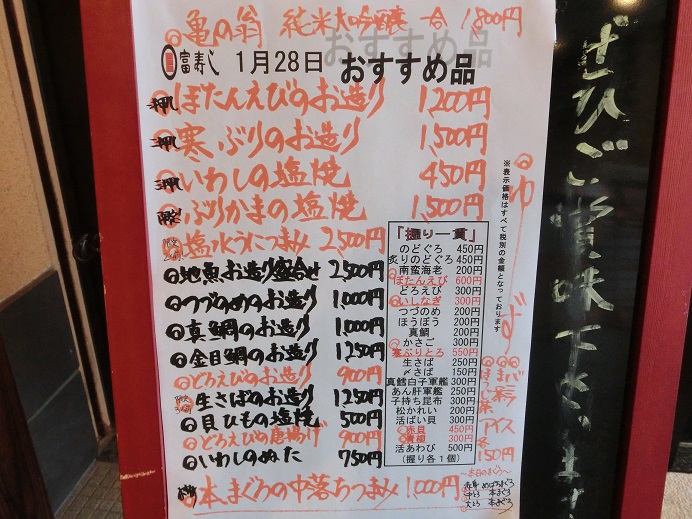 ◎亀の翁 純米大吟醸 一合 1,800円
富寿し 1月28日 おすすめ品
押 ぼたんえびのお造り 1,200円
押 寒ぶりのお造り 1,500円
押 いわしの塩焼 450円
ぶりかまの塩焼 1,500円
◎塩水うにつまみ 2,500円
◎地魚お造り盛合せ 2,500円
◎つづのめのお造り 1,000円
◎真鯛のお造り 1,000円
◎金目鯛のお造り 1,250円
◎どろえびのお造り 900円
限定3前 生さばのお造り 1,250円
◎貝ひもの塩焼 500円
◎どろえびの唐揚げ 900円
◎いわしのぬた 750円
◎本まぐろの中落ちつまみ 1,000円
「握り一貫」
のどぐろ 450円
炙りのどぐろ 450円
南蛮海老 200円
◎ぼたんえび 600円
どろえび 300円
◎いしなぎ 300円
つづのめ 200円
ほうぼう 200円
真鯛 200円
◎かさご 300円
寒ぶりとろ 550円
生さば 250円
〆さば 150円
真鱈白子軍艦 300円
あん肝軍艦 250円
子持ち昆布 300円
松かれい 200円
活ばい貝 300円
◎赤貝 450円
◎青柳 300円
活あわび 500円
(握り各1個)
※表示価格はすべて税別の金額となっております
◎ゆず
アイス
各150円
〜本日のまぐろ〜
赤身 めばちまぐろ
中とろ 本まぐろ
大とろ 本まぐろ
ぜひご賞味下さいませ